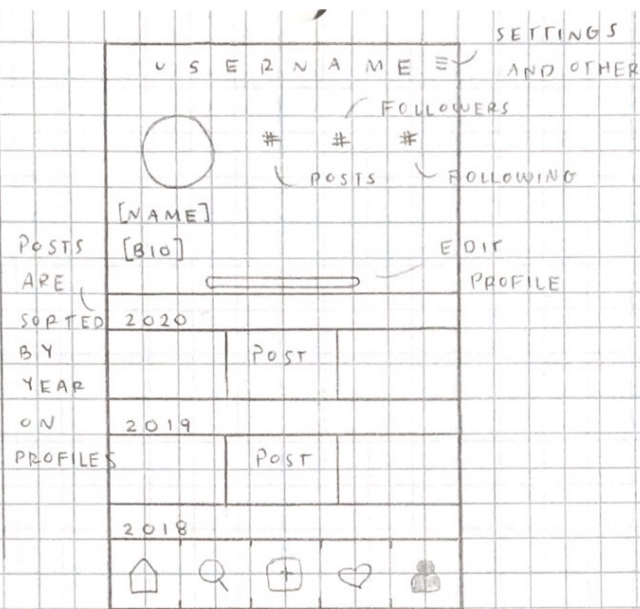 SETTINGS
AND OTHER
USERNAME
FOLLOWERS
# # #
POSTS
FOLLOWING
[NAME]
[BIO]
EDIT
PROFILE
POSTS
ARE
SORTED
BY
YEAR
ON
PROFILES
2020
POST
2019
POST
2018